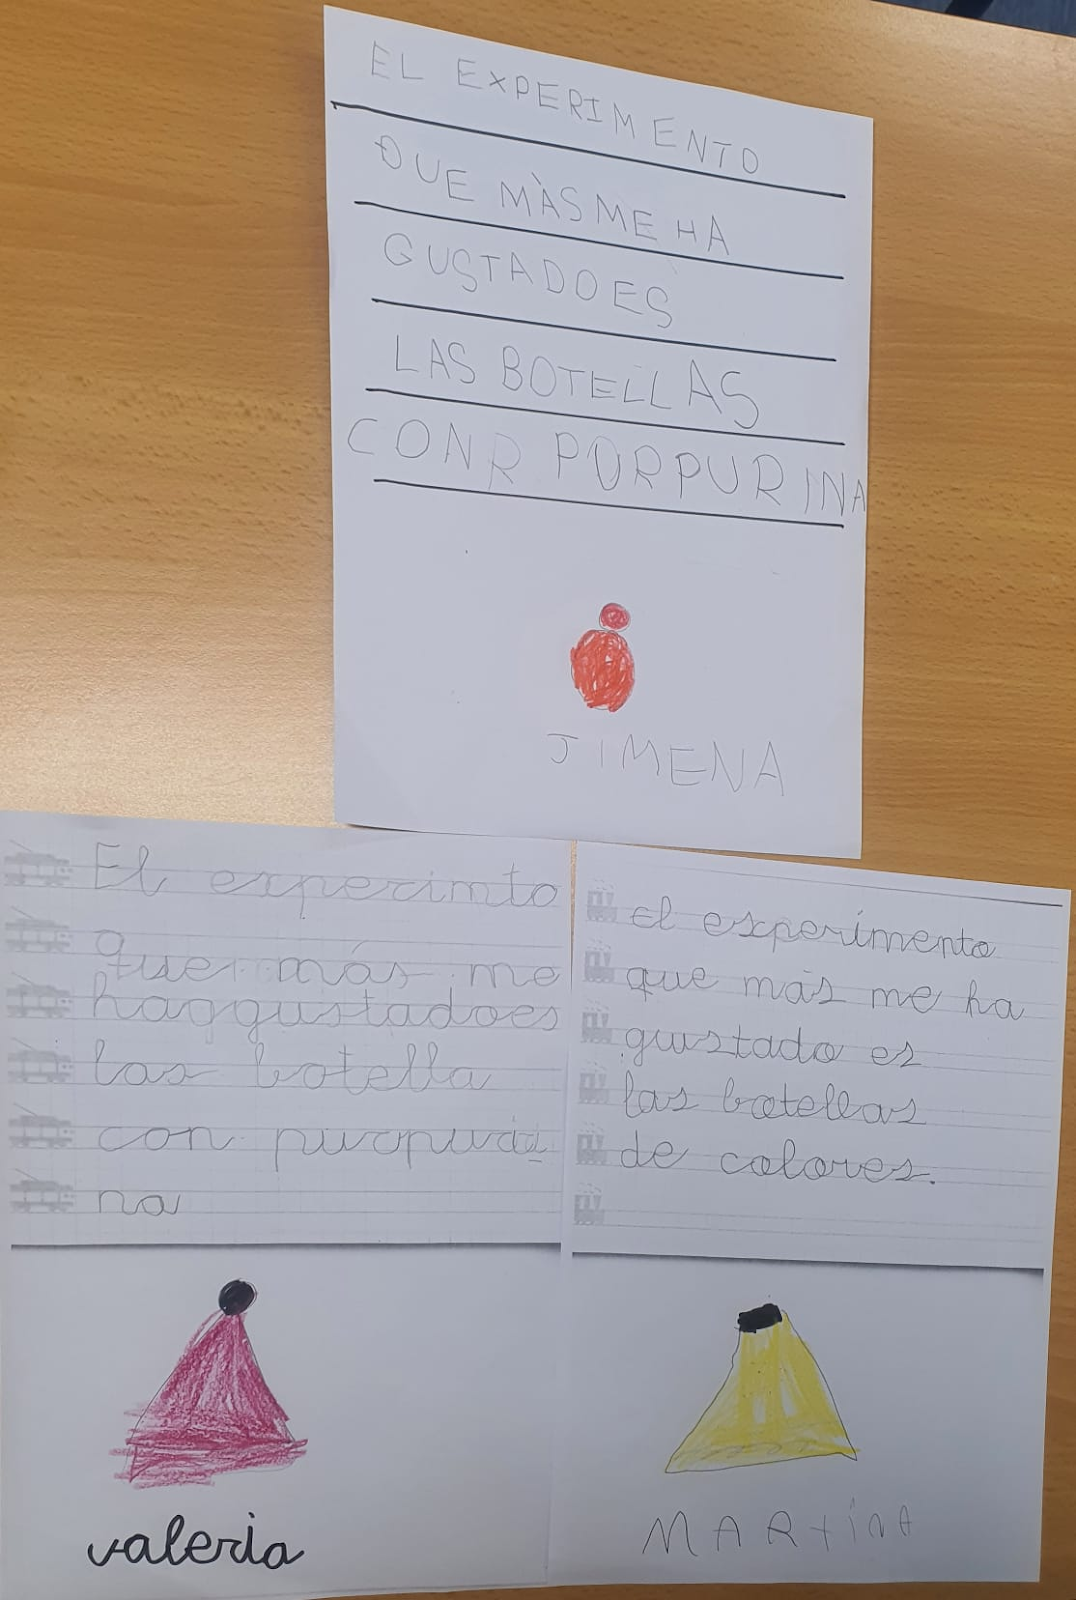 EL EXPERIMENTO
QUE MÀS ME HA
GUSTADO ES
LAS BOTELLAS
CONR PORPURINA
JIMENA
El experimto
que más me
haggustadoes
las botella
con purpur
na
valeria
el experimento
que más me ha
gustado es
las botellas
de colores.
MARtiNA